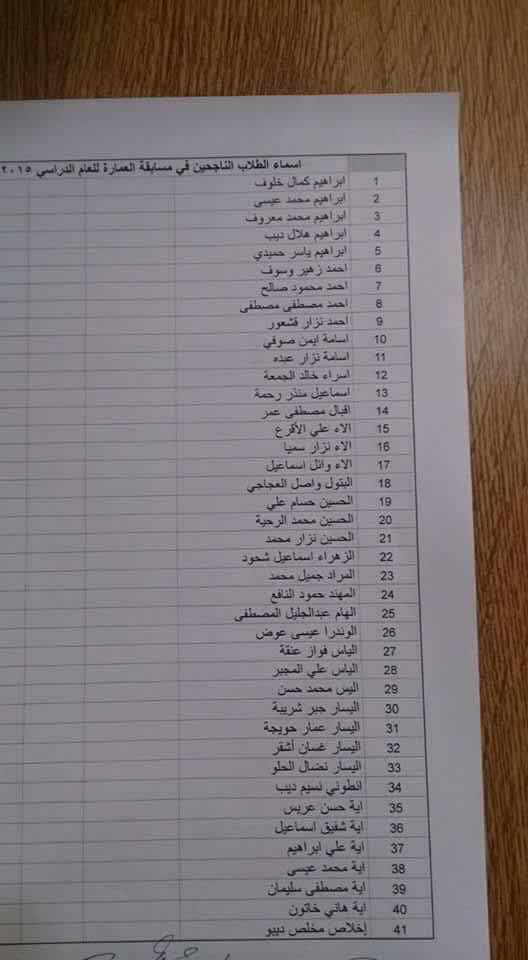 اسماء الطلاب الناجحين في مسابقة العمارة للعام الدراسي ٢٠١٥
1 ابراهيم كمال خلوف
2 ابراهيم محمد عيسى
3 ابراهيم محمد معروف
4 ابراهيم هلال ديب
5 ابراهيم ياسر حميدي
6 احمد زهير وسوف
7 احمد محمود صالح
8 احمد مصطفى مصطفى
9 احمد نزار قشعور
10 اسامة ايمن صوفي
11 اسامة نزار عبده
12 اسراء خالد الجمعة
13 اسماعيل منذر رحمة
14 اقبال مصطفى عمر
15 الاء علي الأقرع
16 الاء نزار سميا
17 الاء وائل اسماعيل
18 البتول واصل العجاجي
19 الحسين حسام علي
20 الحسين محمد الرحية
21 الحسين نزار محمد
22 الزهراء اسماعيل شحود
23 المراد جميل محمد
24 المهند حمود النافع
25 الهام عبدالجليل المصطفى
26 الوندرا عيسى عوض
27 الياس فواز عنقة
28 الياس علي المجبر
29 اليس محمد حسن
30 اليسار جبر شريبة
31 اليسار عمار حويجة
32 اليسار غسان أشقر
33 اليسار نضال الحلو
34 انطوني نسيم ديب
35 اية حسن عريس
36 اية شفيق اسماعيل
37 اية علي ابراهيم
38 اية محمد عيسى
39 اية مصطفى سليمان
40 اية هاني خاتون
41 إخلاص مخلص ديبو